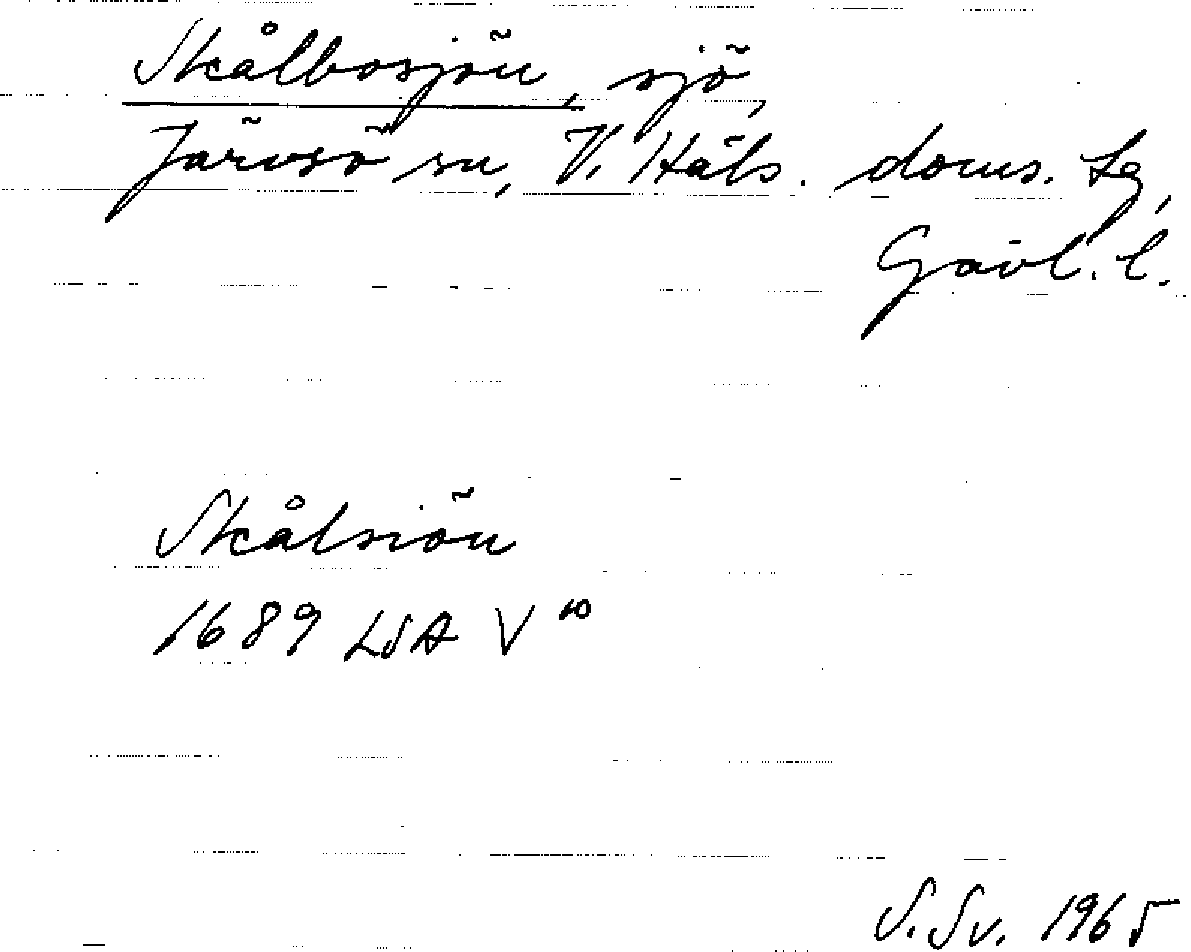 Skålbosjön, sjö,
Järvsö sn, V. Häls. doms. Lg,
Gävl. l.
Skålsiön
1689 LSA V 10
S. Sv. 1965